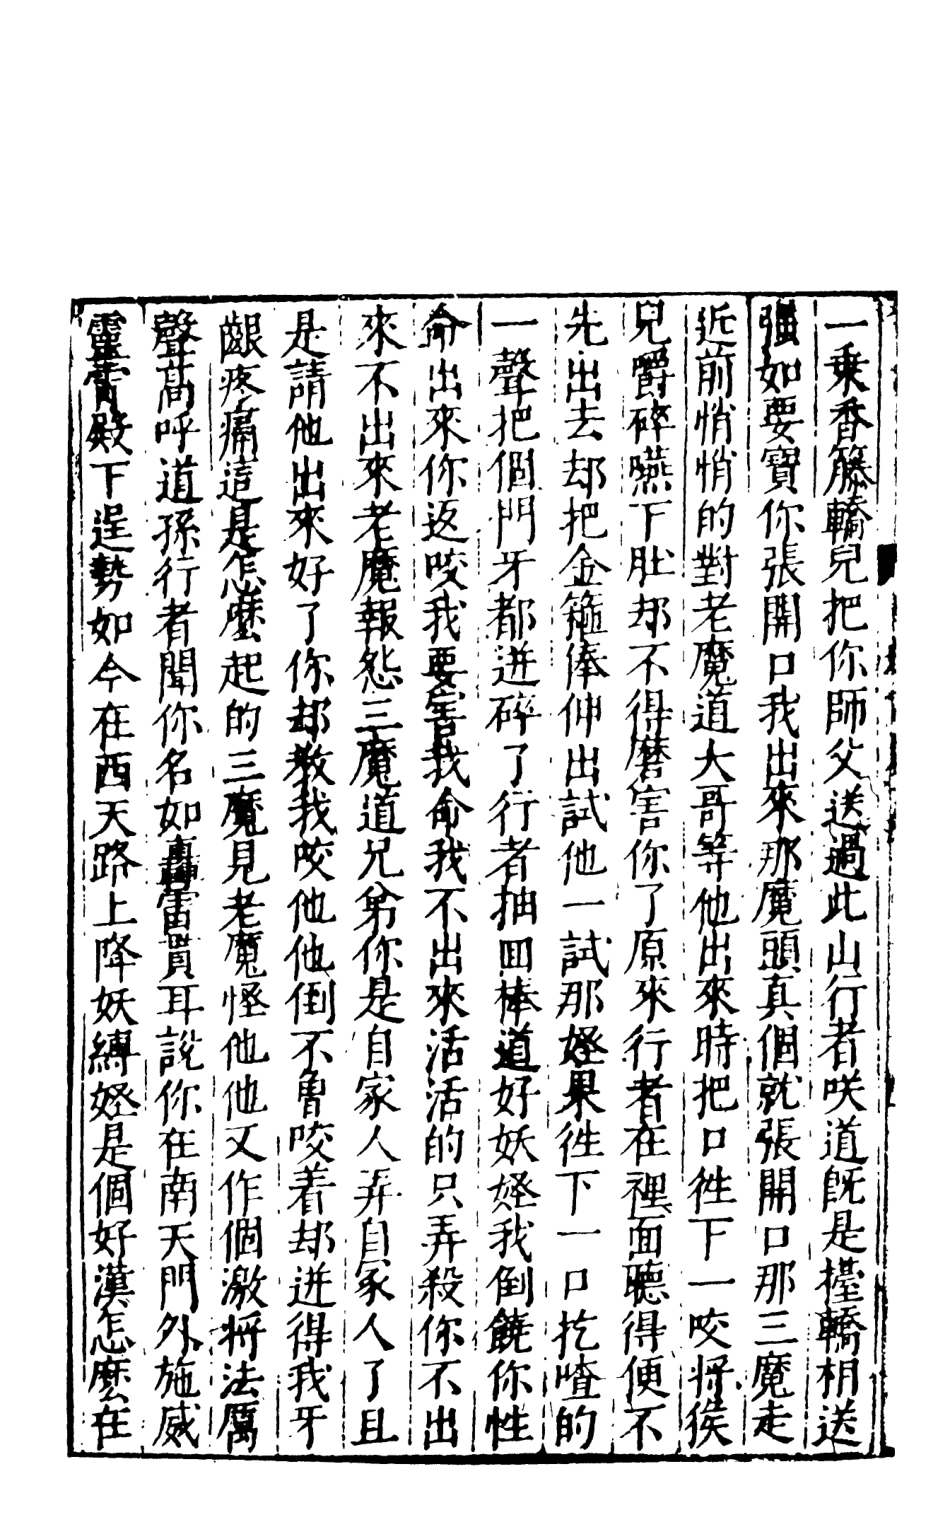 一乗香籐轎兒把你師父送過此山行者咲道旣是擡轎相送
強如要寶你張開口我出來那魔頭真個就張開口那三魔走
近前悄悄的對老魔道大哥等他出來時把口徃下一咬將猴
兒嚼碎嚥下肚却不得磨害你了原來行者在裡面聽得便不
先出去却把金箍俸伸出試他一試那怪果徃下一口扢喳的
一聲把個門牙都迸碎了行者抽囬棒道好妖怪我倒饒你性
命出來你返咬我要害我命我不出來活活的只弄殺你不出
來不出來老魔報怨三魔道兄弟你是自家人弄自家人了且
是請他出來好了你却教我咬他他倒不曾咬着却迸得我牙
齦疼痛這是怎麼起的三魔見老魔怪他他又作個激將法厲
聲高呼道孫行者聞你名如轟雷貫耳說你在南天門外施威
靈霄殿下逞勢如今在西天路上降妖縛怪是個好漢怎麼在